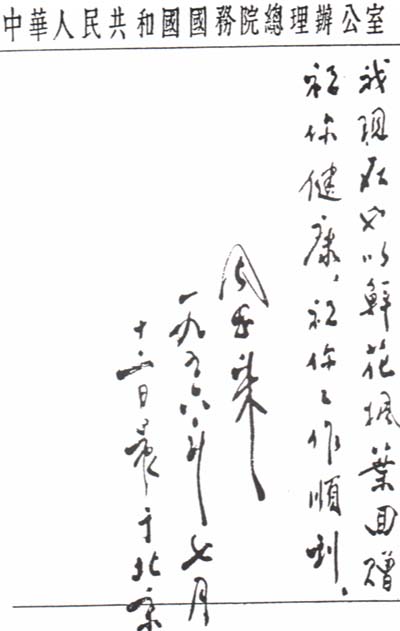 中華人民共和國國務院總理辦公室
我現在也以鮮花楓葉回贈
祝你健康，祝你工作順利。
周恩来
一九五六年七月
十二日晨于北京